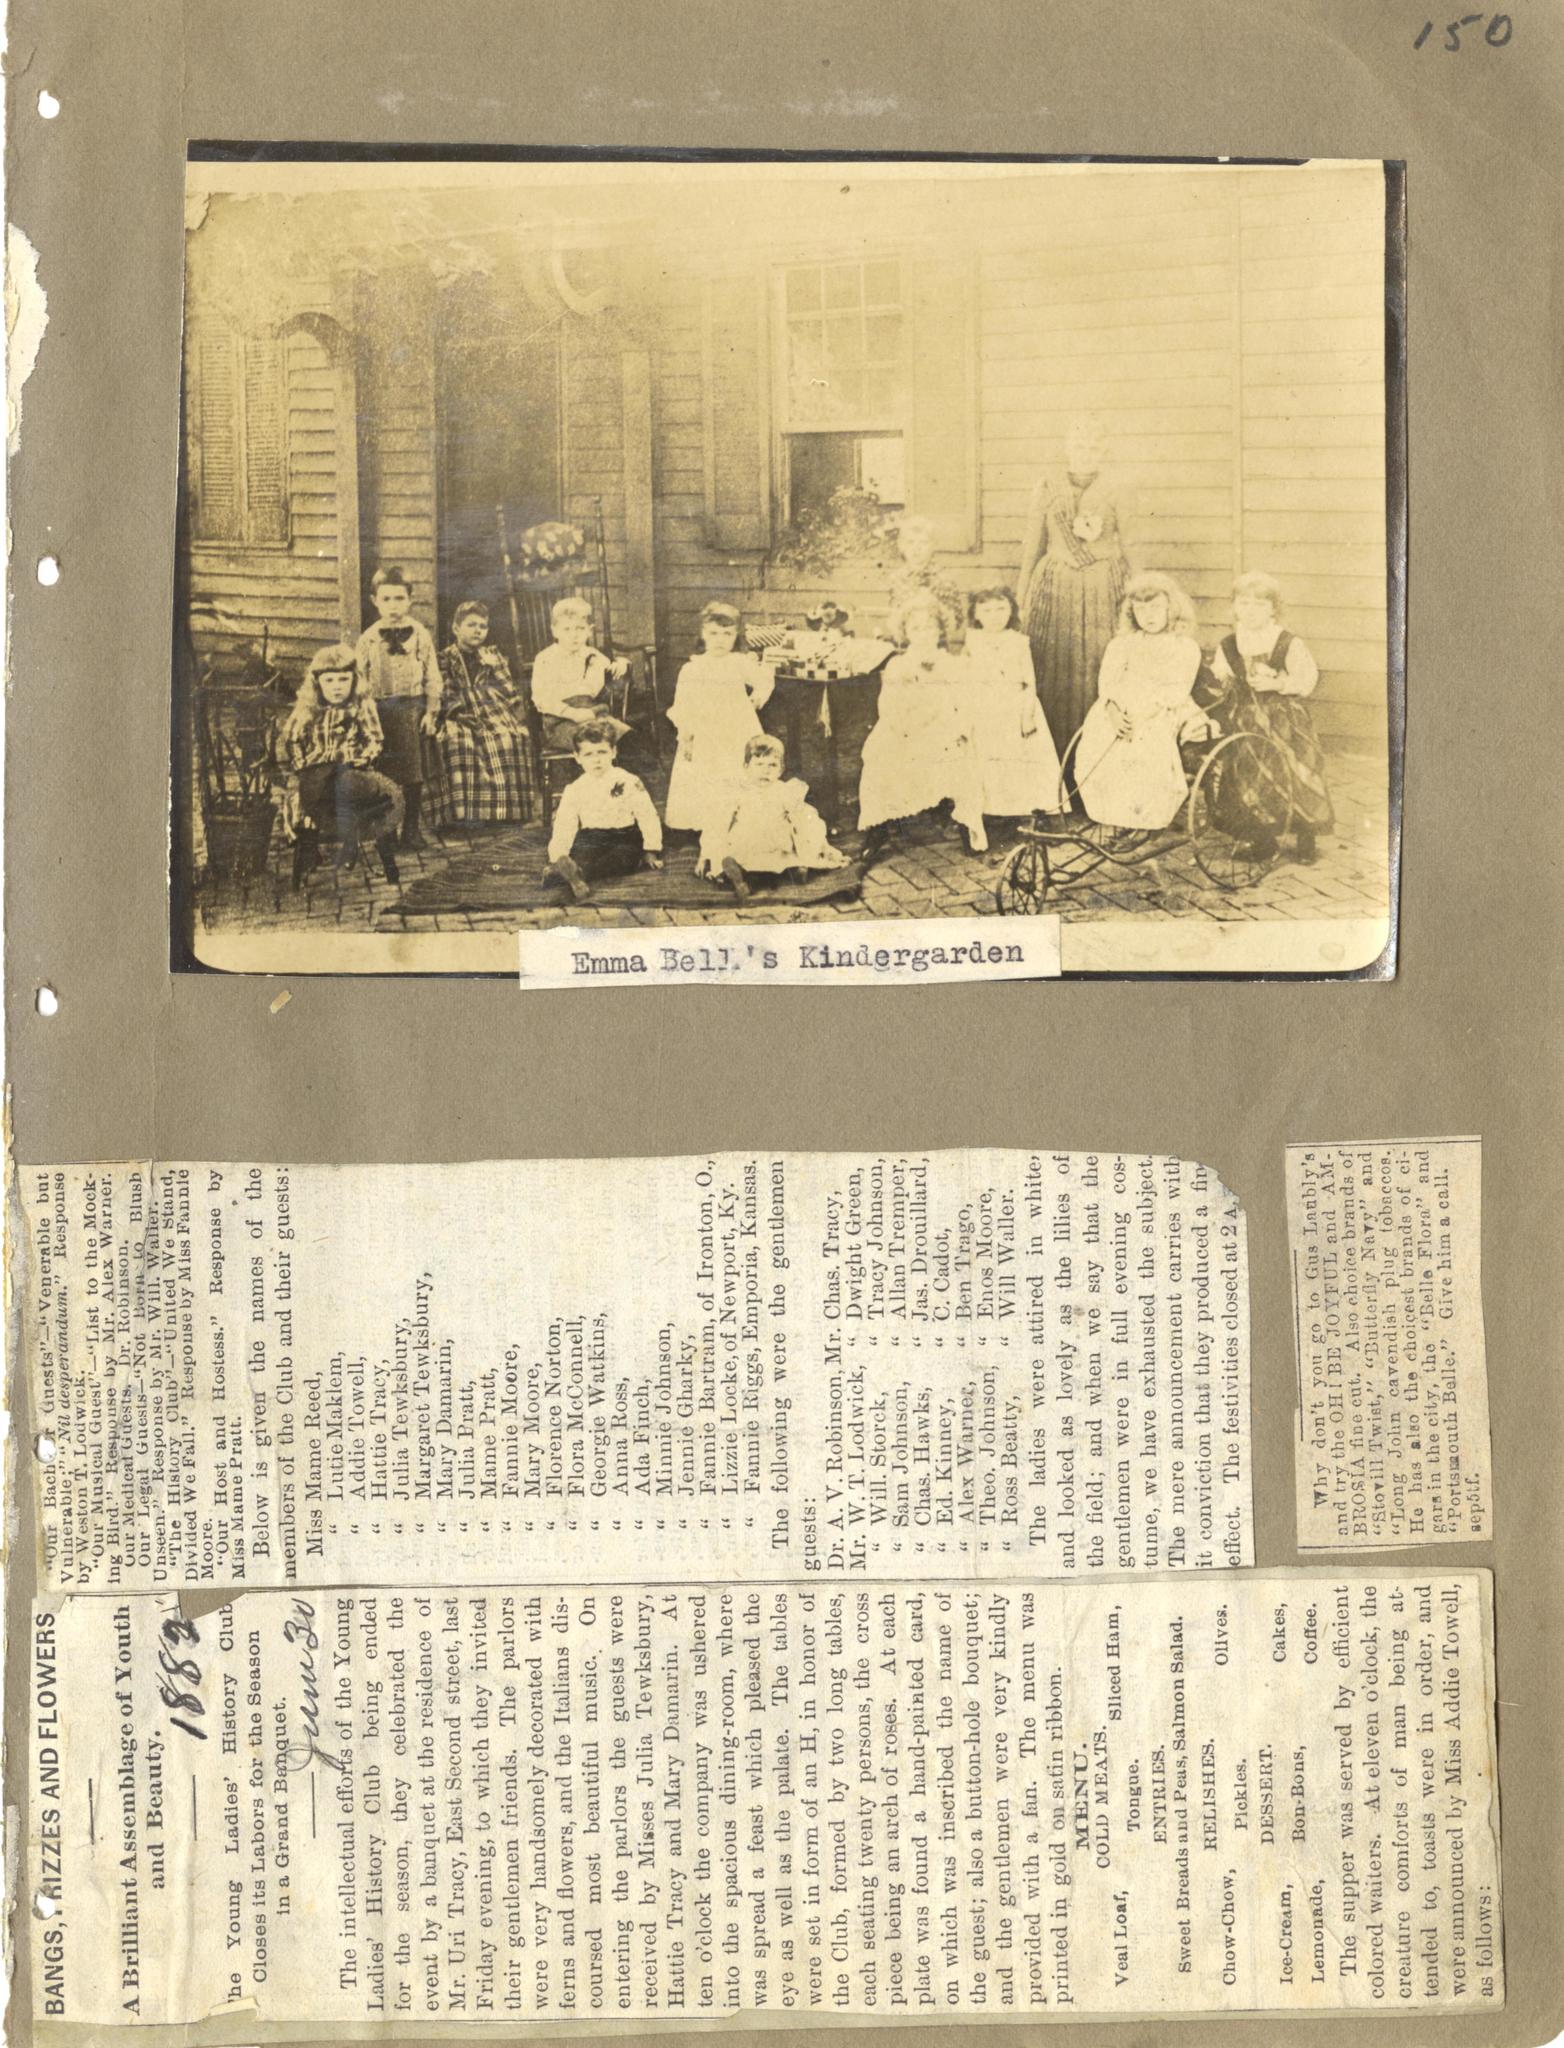 150
Emma Bell's Kindergarden
BANGS, FRIZZES AND FLOWERS
A Brilliant Assemblage of Youth
and Beauty.
1882
The Young Ladies' History Club
Closes its Labors for the Season
in a Grand Banquet.
June 30
The intellectual efforts of the Young
Ladies' History Club being ended
for the season, they celebrated the
event by a banquet at the residence of
Mr. Uri Tracy, East Second street, last
Friday evening, to which they invited
their gentlemen friends. The parlors
were very handsomely decorated with
ferns and flowers, and the Italians dis-
coursed most beautiful music. On
entering the parlors the guests were
received by Misses Julia Tewksbury,
Hattie Tracy and Mary Damarin. At
ten o'clock the company was ushered
into the spacious dining-room, where
was spread a feast which pleased the
eye as well as the palate. The tables
were set in form of an H, in honor of
the Club, formed by two long tables,
each seating twenty persons, the cross
piece being an arch of roses. At each
plate was found a hand-painted card,
on which was inscribed the name of
the guest; also a button-hole bouquet;
and the gentlemen were very kindly
provided with a fan. The menu was
printed in gold on satin ribbon.
MENU.
COLD MEATS.
Veal Loaf, Tongue. Sliced Ham,
ENTRIES.
Sweet Breads and Peas, Salmon Salad.
RELISHES.
Chow-Chow, Pickles. Olives.
DESSERT.
Ice-Cream, Cakes,
Lemonade, Bon-Bons, Coffee.
The supper was served by efficient
colored waiters. At eleven o'clock, the
creature comforts of man being at-
tended to, toasts were in order, and
were announced by Miss Addie Towell,
as follows:
"Our Bachelor Guests"—"Venerable but
Vulnerable;" "Nil desperandum." Response
by Weston T. Lodwick.
"Our Musical Guest"—"List to the Mock-
ing Bird." Response by Mr. Alex Warner.
Our Medical Guests, Dr. Robinson.
Our Legal Guests—"Not Born to Blush
Unseen." Response by Mr. Will. Waller.
"The History Club"—"United We Stand,
Divided We Fall." Response by Miss Fannie
Moore.
"Our Host and Hostess." Response by
Miss Mame Pratt.
Below is given the names of the
members of the Club and their guests:
Miss Mame Reed,
" Lutie Maklem,
" Addie Towell,
" Hattie Tracy,
" Julia Tewksbury,
" Margaret Tewksbury,
" Mary Damarin,
" Julia Pratt,
" Mame Pratt,
" Fannie Moore,
" Mary Moore,
" Florence Norton,
" Flora McConnell,
" Georgie Watkins,
" Anna Ross,
" Ada Finch,
" Minnie Johnson,
" Jennie Gharky,
" Fannie Bartram, of Ironton, O.,
" Lizzie Locke, of Newport, Ky.
" Fannie Riggs, Emporia, Kansas.
The following were the gentlemen
guests:
Dr. A. V. Robinson, Mr. Chas. Tracy,
Mr. W. T. Lodwick, " Dwight Green,
" Will. Storck, " Tracy Johnson,
" Sam Johnson, " Allan Tremper,
" Chas. Hawks, " Jas. Drouillard,
" Ed. Kinney, " C. Cadot,
" Alex Warner, " Ben Trago,
" Theo. Johnson, " Enos Moore,
" Ross Beatty, " Will Waller.
The ladies were attired in white,
and looked as lovely as the lilies of
the field; and when we say that the
gentlemen were in full evening cos-
tume, we have exhausted the subject.
The mere announcement carries with
it conviction that they produced a fine
effect. The festivities closed at 2 A.
Why don't you go to Gus Laubly's
and try the OH! BE JOYFUL and AM-
BROSIA fine cut. Also choice brands of
"Stovill Twist," "Butterfly Navy" and
"Long John" cavendish plug tobaccos.
He has also the choicest brands of ci-
gars in the city, the "Belle Flora" and
"Portsmouth Belle." Give him a call.
sep5tf.